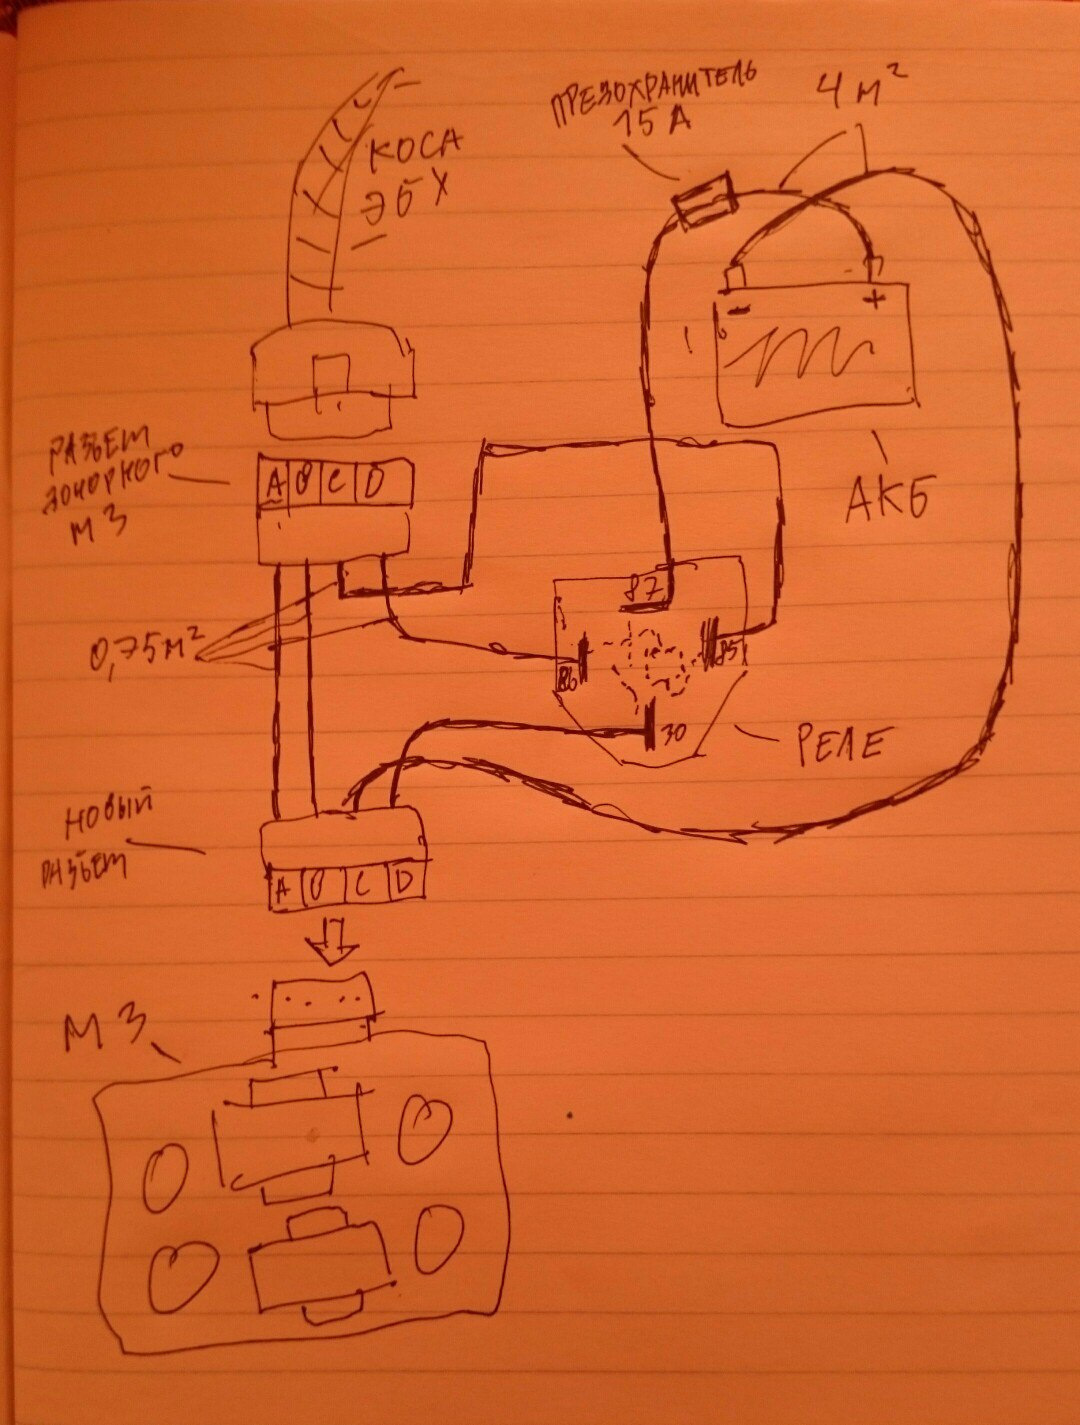 ПРЕЗОХРАНИТЕЛЬ
15 А
4 м²
КОСА
ЭБУ
- +
АКБ
РАЗЬЕМ
ДОНОРНОГО
МЗ
A B C D
0,75 м²
87
86
85
30
РЕЛЕ
НОВЫЙ
РАЗЬЕМ
A B C D
МЗ